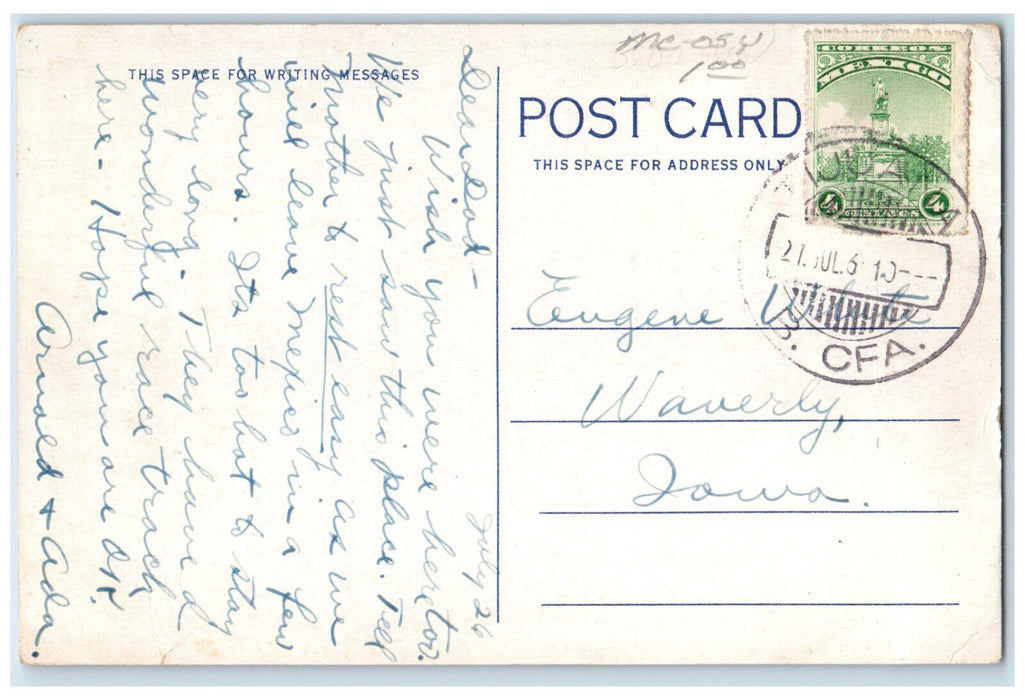 THIS SPACE FOR WRITING MESSAGES
July 26
Dear Dad -
Wish you were here too.
We just saw this place. Tell
mother to rest easy as we
will leave Mexico in a few
hours. Its too hot to stay
very long. They have a
wonderful race track
here - Hope you are OK.
Arnold + Ada.
MC-054
1.00
POST CARD
THIS SPACE FOR ADDRESS ONLY
CORREOS
MEXICO
4c
CENTAVOS
4c
27.JUL.3 10---
B. CFA.
Eugene White
Waverly,
Iowa.